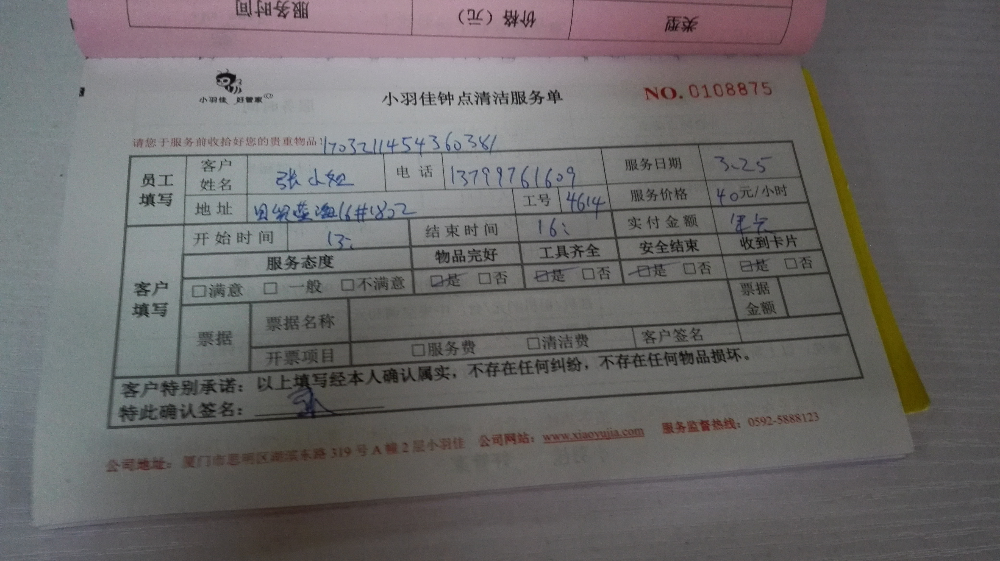 类型 价格（元） 服务时间
小羽佳 好管家
小羽佳钟点清洁服务单 NO. 0108875
请您于服务前收拾好您的贵重物品! 1703211454360381
员工填写 客户姓名 张小姐 电话 13799761609 服务日期 3.25
地址 16#1802 工号 4614 服务价格 40元/小时
客户填写 开始时间 13: 结束时间 16: 实付金额
服务态度 物品完好 工具齐全 安全结束 收到卡片
□满意 □一般 □不满意 □是 □否 □是 □否 □是 □否 □是 □否
票据 票据名称 票据金额
开票项目 □服务费 □清洁费 客户签名
客户特别承诺：以上填写经本人确认属实，不存在任何纠纷，不存在任何物品损坏。
特此确认签名：
公司地址：厦门市思明区湖滨东路319号A幢2层小羽佳 公司网站：www.xiaoyujia.com 服务监督热线：0592-5888123